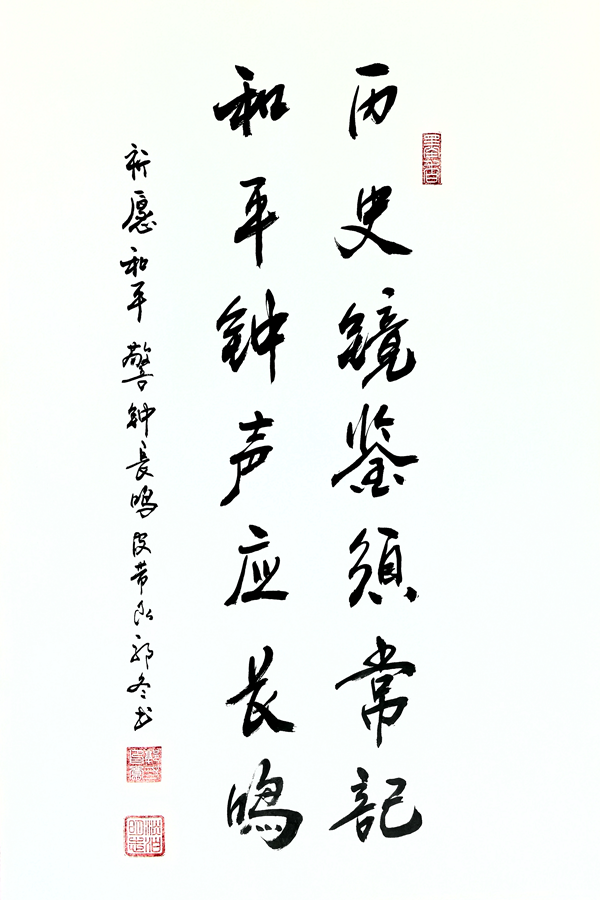 历史镜鉴须常记
和平钟声应长鸣
祈愿和平 警钟長鸣 皮带永郭冬书